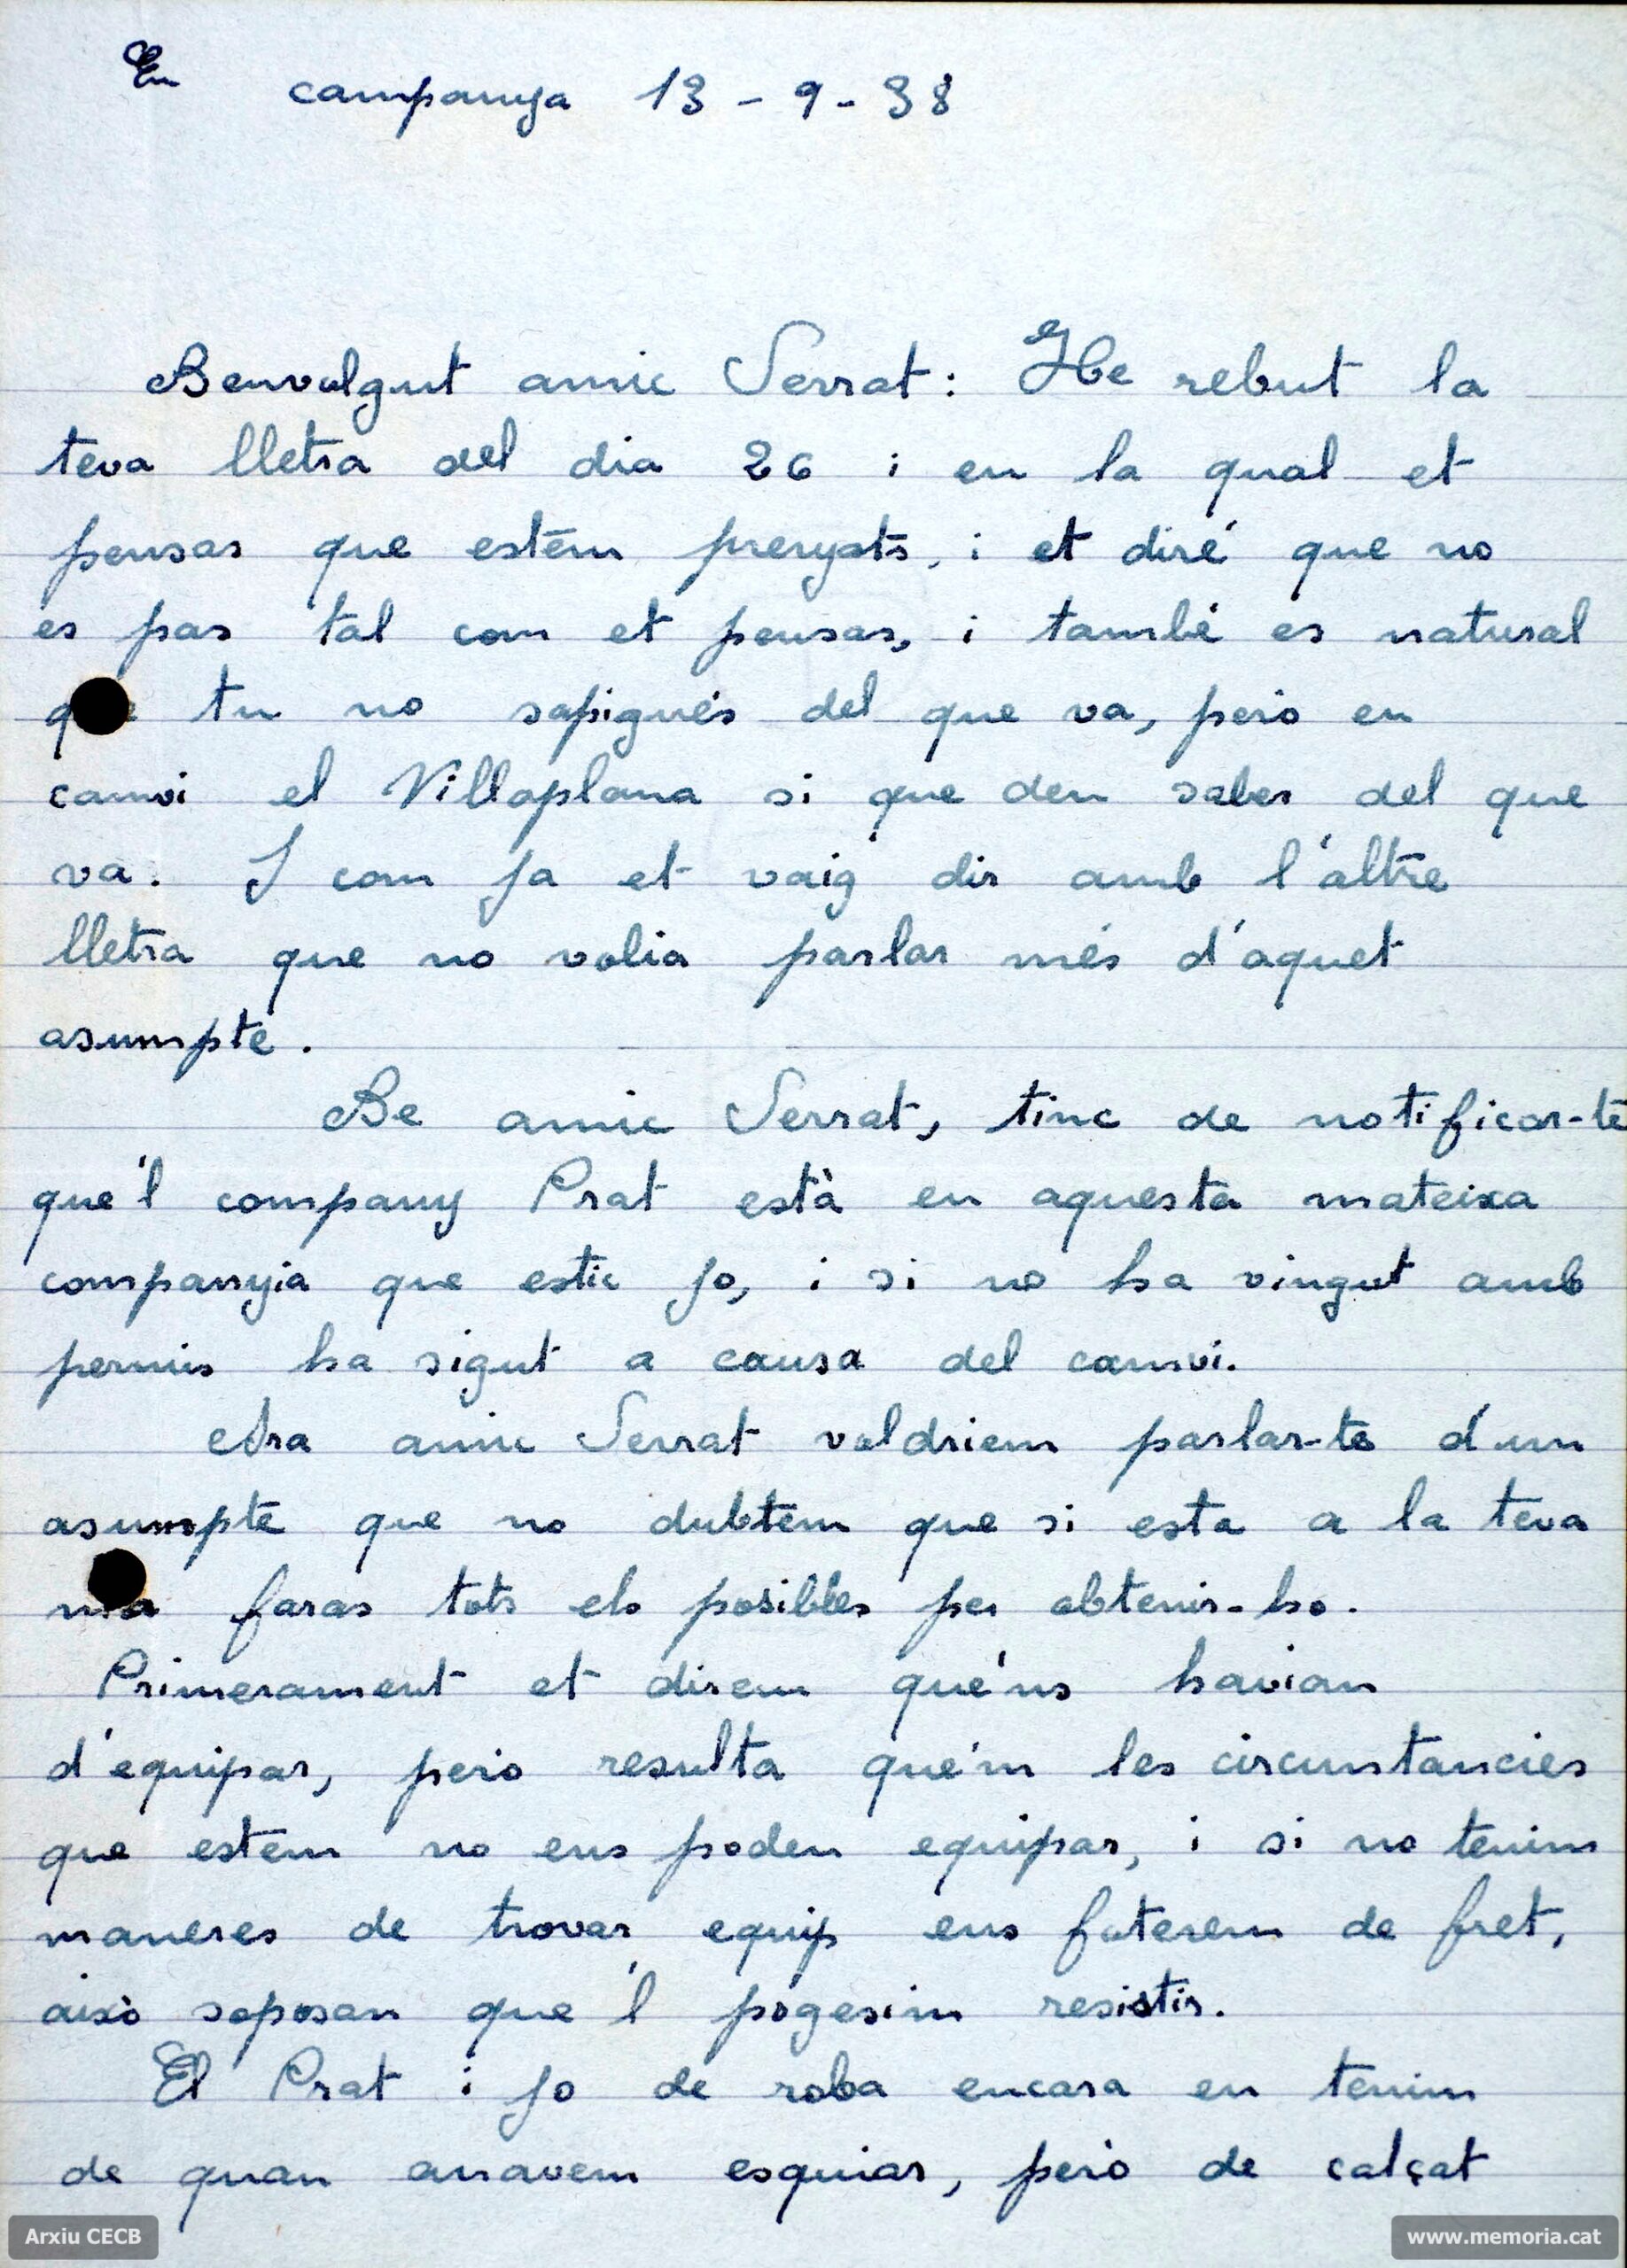 En campanya 13 - 9 - 38
Benvolgut amic Serrat: He rebut la
teva lletra del dia 26 i en la qual et
pensas que estém prenyats, i et diré que no
es pas tal com et pensas, i també es natural
que tu no sapigués del que va, peró en
camvi el Villaplana si que deu saber del que
va. I com ja et vaig dir amb l'altre
lletra que no volia parlar més d'aquet
asumpte.
Be amic Serrat, tinc de notificar-te
que'l company Prat està en aquesta mateixa
companyia que estic jo, i si no ha vingut amb
permis ha sigut a causa del camvi.
Ara amic Serrat voldriem parlar-te d'un
asumpte que no dubtem que si esta a la teva
ma faras tots els posibles per obtenir-ho.
Primerament et direm que'ns havian
d'equipar, pero resulta que'm les circunstancies
que estem no ens poden equipar, i si no tenim
maneres de trovar equip ens foterem de fret,
aixó soposan que'l pogesim resistir.
El Prat i jo de roba encara en tenim
de quan anavem esquiar, però de calçat
Arxiu CECB
www.memoria.cat